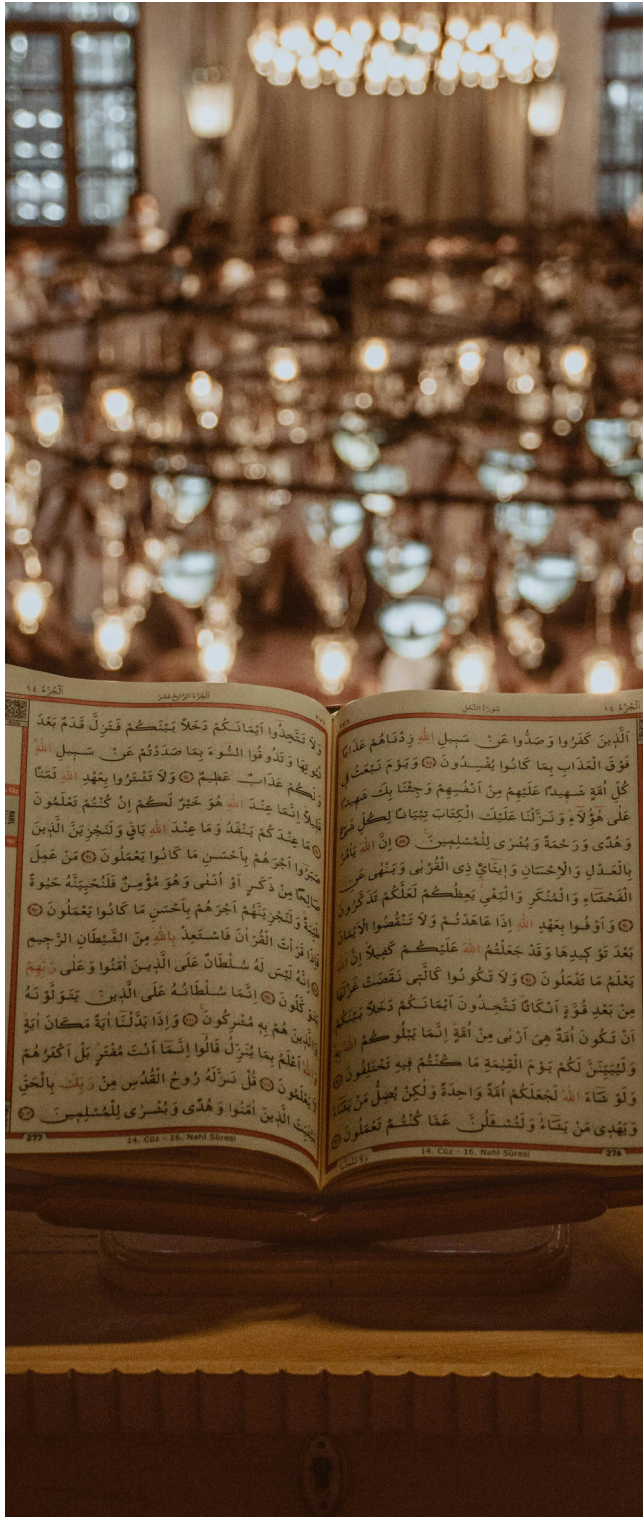 اَلْجُزْءُ ١٤
سُورَةُ النَّحْلِ
٢٧٦
اَلَّذِينَ كَفَرُوا وَصَدُّوا عَنْ سَبِيلِ اللّٰهِ زِدْنَاهُمْ عَذَابًا
فَوْقَ الْعَذَابِ بِمَا كَانُوا يُفْسِدُونَ ۝ وَيَوْمَ نَبْعَثُ فِي
كُلِّ اُمَّةٍ شَهِيدًا عَلَيْهِمْ مِنْ اَنْفُسِهِمْ وَجِئْنَا بِكَ شَهِيدًا
عَلٰى هٰٓؤُ۬لَٓاءِ وَنَزَّلْنَا عَلَيْكَ الْكِتَابَ تِبْيَانًا لِكُلِّ شَيْءٍ
وَهُدًى وَرَحْمَةً وَبُشْرٰى لِلْمُسْلِمِينَ ۝ اِنَّ اللّٰهَ يَأْمُرُ
بِالْعَدْلِ وَالْاِحْسَانِ وَاِيتَٓائِ ذِي الْقُرْبٰى وَيَنْهٰى عَنِ
الْفَحْشَٓاءِ وَالْمُنْكَرِ وَالْبَغْيِ يَعِظُكُمْ لَعَلَّكُمْ تَذَكَّرُونَ
۝ وَاَوْفُوا بِعَهْدِ اللّٰهِ اِذَا عَاهَدْتُمْ وَلَا تَنْقُضُوا الْاَيْمَانَ
بَعْدَ تَوْكِيدِهَا وَقَدْ جَعَلْتُمُ اللّٰهَ عَلَيْكُمْ كَفِيلًا اِنَّ اللّٰهَ
يَعْلَمُ مَا تَفْعَلُونَ ۝ وَلَا تَكُونُوا كَالَّتِي نَقَضَتْ غَزْلَهَا
مِنْ بَعْدِ قُوَّةٍ اَنْكَاثًا تَتَّخِذُونَ اَيْمَانَكُمْ دَخَلًا بَيْنَكُمْ
اَنْ تَكُونَ اُمَّةٌ هِيَ اَرْبٰى مِنْ اُمَّةٍ اِنَّمَا يَبْلُوكُمُ اللّٰهُ بِهِ
وَلَيُبَيِّنَنَّ لَكُمْ يَوْمَ الْقِيٰمَةِ مَا كُنْتُمْ فِيهِ تَخْتَلِفُونَ ۝
وَلَوْ شَٓاءَ اللّٰهُ لَجَعَلَكُمْ اُمَّةً وَاحِدَةً وَلٰكِنْ يُضِلُّ مَنْ يَشَٓاءُ
وَيَهْدِي مَنْ يَشَٓاءُ وَلَتُسْـَٔلُنَّ عَمَّا كُنْتُمْ تَعْمَلُونَ ۝
14. Cüz - 16. Nahl Sûresi
276
اَلْجُزْءُ ١٤
اَلْجُزْءُ الرَّابِعُ عَشَرَ
٢٧٧
وَلَا تَتَّخِذُٓوا اَيْمَانَكُمْ دَخَلًا بَيْنَكُمْ فَتَزِلَّ قَدَمٌ بَعْدَ
ثُبُوتِهَا وَتَذُوقُوا السُّٓوءَ بِمَا صَدَدْتُمْ عَنْ سَبِيلِ اللّٰهِ
وَلَكُمْ عَذَابٌ عَظِيمٌ ۝ وَلَا تَشْتَرُوا بِعَهْدِ اللّٰهِ ثَمَنًا
قَلِيلًا اِنَّمَا عِنْدَ اللّٰهِ هُوَ خَيْرٌ لَكُمْ اِنْ كُنْتُمْ تَعْلَمُونَ
۝ مَا عِنْدَكُمْ يَنْفَدُ وَمَا عِنْدَ اللّٰهِ بَاقٍ وَلَنَجْزِيَنَّ الَّذِينَ
صَبَرُٓوا اَجْرَهُمْ بِاَحْسَنِ مَا كَانُوا يَعْمَلُونَ ۝ مَنْ عَمِلَ
صَالِحًا مِنْ ذَكَرٍ اَوْ اُنْثٰى وَهُوَ مُؤْمِنٌ فَلَنُحْيِيَنَّهُ حَيٰوةً
طَيِّبَةً وَلَنَجْزِيَنَّهُمْ اَجْرَهُمْ بِاَحْسَنِ مَا كَانُوا يَعْمَلُونَ ۝
فَاِذَا قَرَأْتَ الْقُرْاٰنَ فَاسْتَعِذْ بِاللّٰهِ مِنَ الشَّيْطَانِ الرَّجِيمِ
۝ اِنَّهُ لَيْسَ لَهُ سُلْطَانٌ عَلَى الَّذِينَ اٰمَنُوا وَعَلٰى رَبِّهِمْ
يَتَوَكَّلُونَ ۝ اِنَّمَا سُلْطَانُهُ عَلَى الَّذِينَ يَتَوَلَّوْنَهُ
وَالَّذِينَ هُمْ بِهِ مُشْرِكُونَ ۝ وَاِذَا بَدَّلْنَٓا اٰيَةً مَكَانَ اٰيَةٍ
وَاللّٰهُ اَعْلَمُ بِمَا يُنَزِّلُ قَالُٓوا اِنَّمَٓا اَنْتَ مُفْتَرٍ بَلْ اَكْثَرُهُمْ
لَا يَعْلَمُونَ ۝ قُلْ نَزَّلَهُ رُوحُ الْقُدُسِ مِنْ رَبِّكَ بِالْحَقِّ
لِيُثَبِّتَ الَّذِينَ اٰمَنُوا وَهُدًى وَبُشْرٰى لِلْمُسْلِمِينَ ۝
14. Cüz - 16. Nahl Sûresi
277